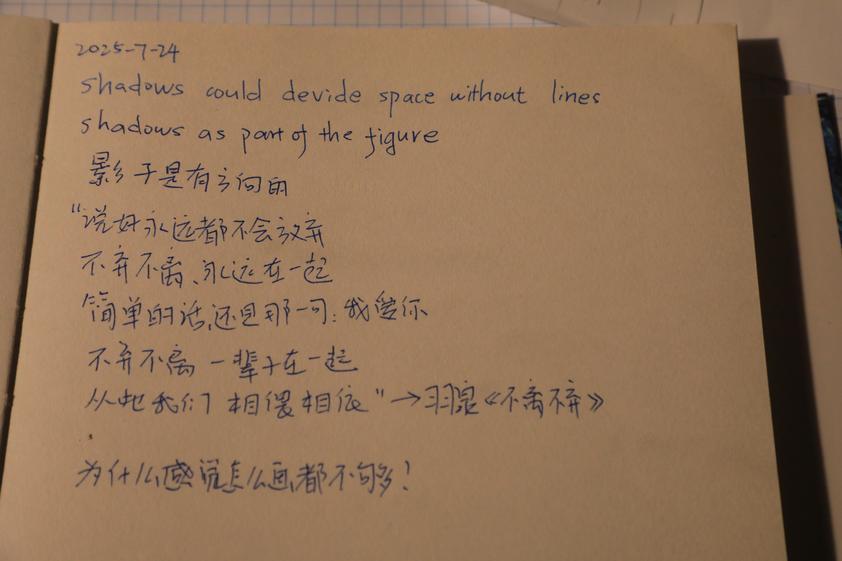 2025-7-24
shadows could devide space without lines
shadows as part of the figure
影子是有方向的
"说好永远都不会放弃
不弃不离、永远在一起
简单的话,还是那一句:我爱你
不弃不离 一辈子在一起
从此我们 相偎相依"→羽泉《不离不弃》
为什么感觉怎么画都不够!